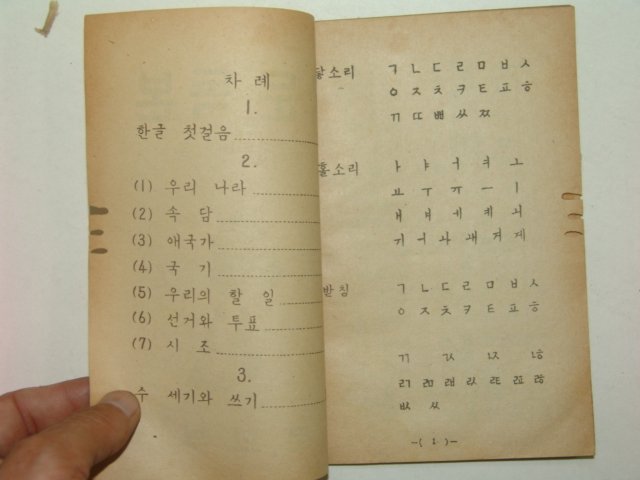 차 례
1.
한글 첫걸음
2.
(1) 우리 나라
(2) 속 담
(3) 애국가
(4) 국 기
(5) 우리의 할 일
(6) 선거와 투표
(7) 시 조
3.
수 세기와 쓰기
닿소리 ㄱ ㄴ ㄷ ㄹ ㅁ ㅂ ㅅ
ㅇ ㅈ ㅊ ㅋ ㅌ ㅍ ㅎ
ㄲ ㄸ ㅃ ㅆ ㅉ
홀소리 ㅏ ㅑ ㅓ ㅕ ㅗ
ㅛ ㅜ ㅠ ㅡ ㅣ
ㅐ ㅒ ㅔ ㅖ ㅚ
ㅟ ㅢ ㅘ ㅙ ㅝ ㅞ
받침 ㄱ ㄴ ㄷ ㄹ ㅁ ㅂ ㅅ
ㅇ ㅈ ㅊ ㅋ ㅌ ㅍ ㅎ
ㄲ ㄳ ㄵ ㄶ
ㄺ ㄻ ㄼ ㄽ ㄾ ㄿ ㅀ
ㅄ ㅆ
-( 1 )-